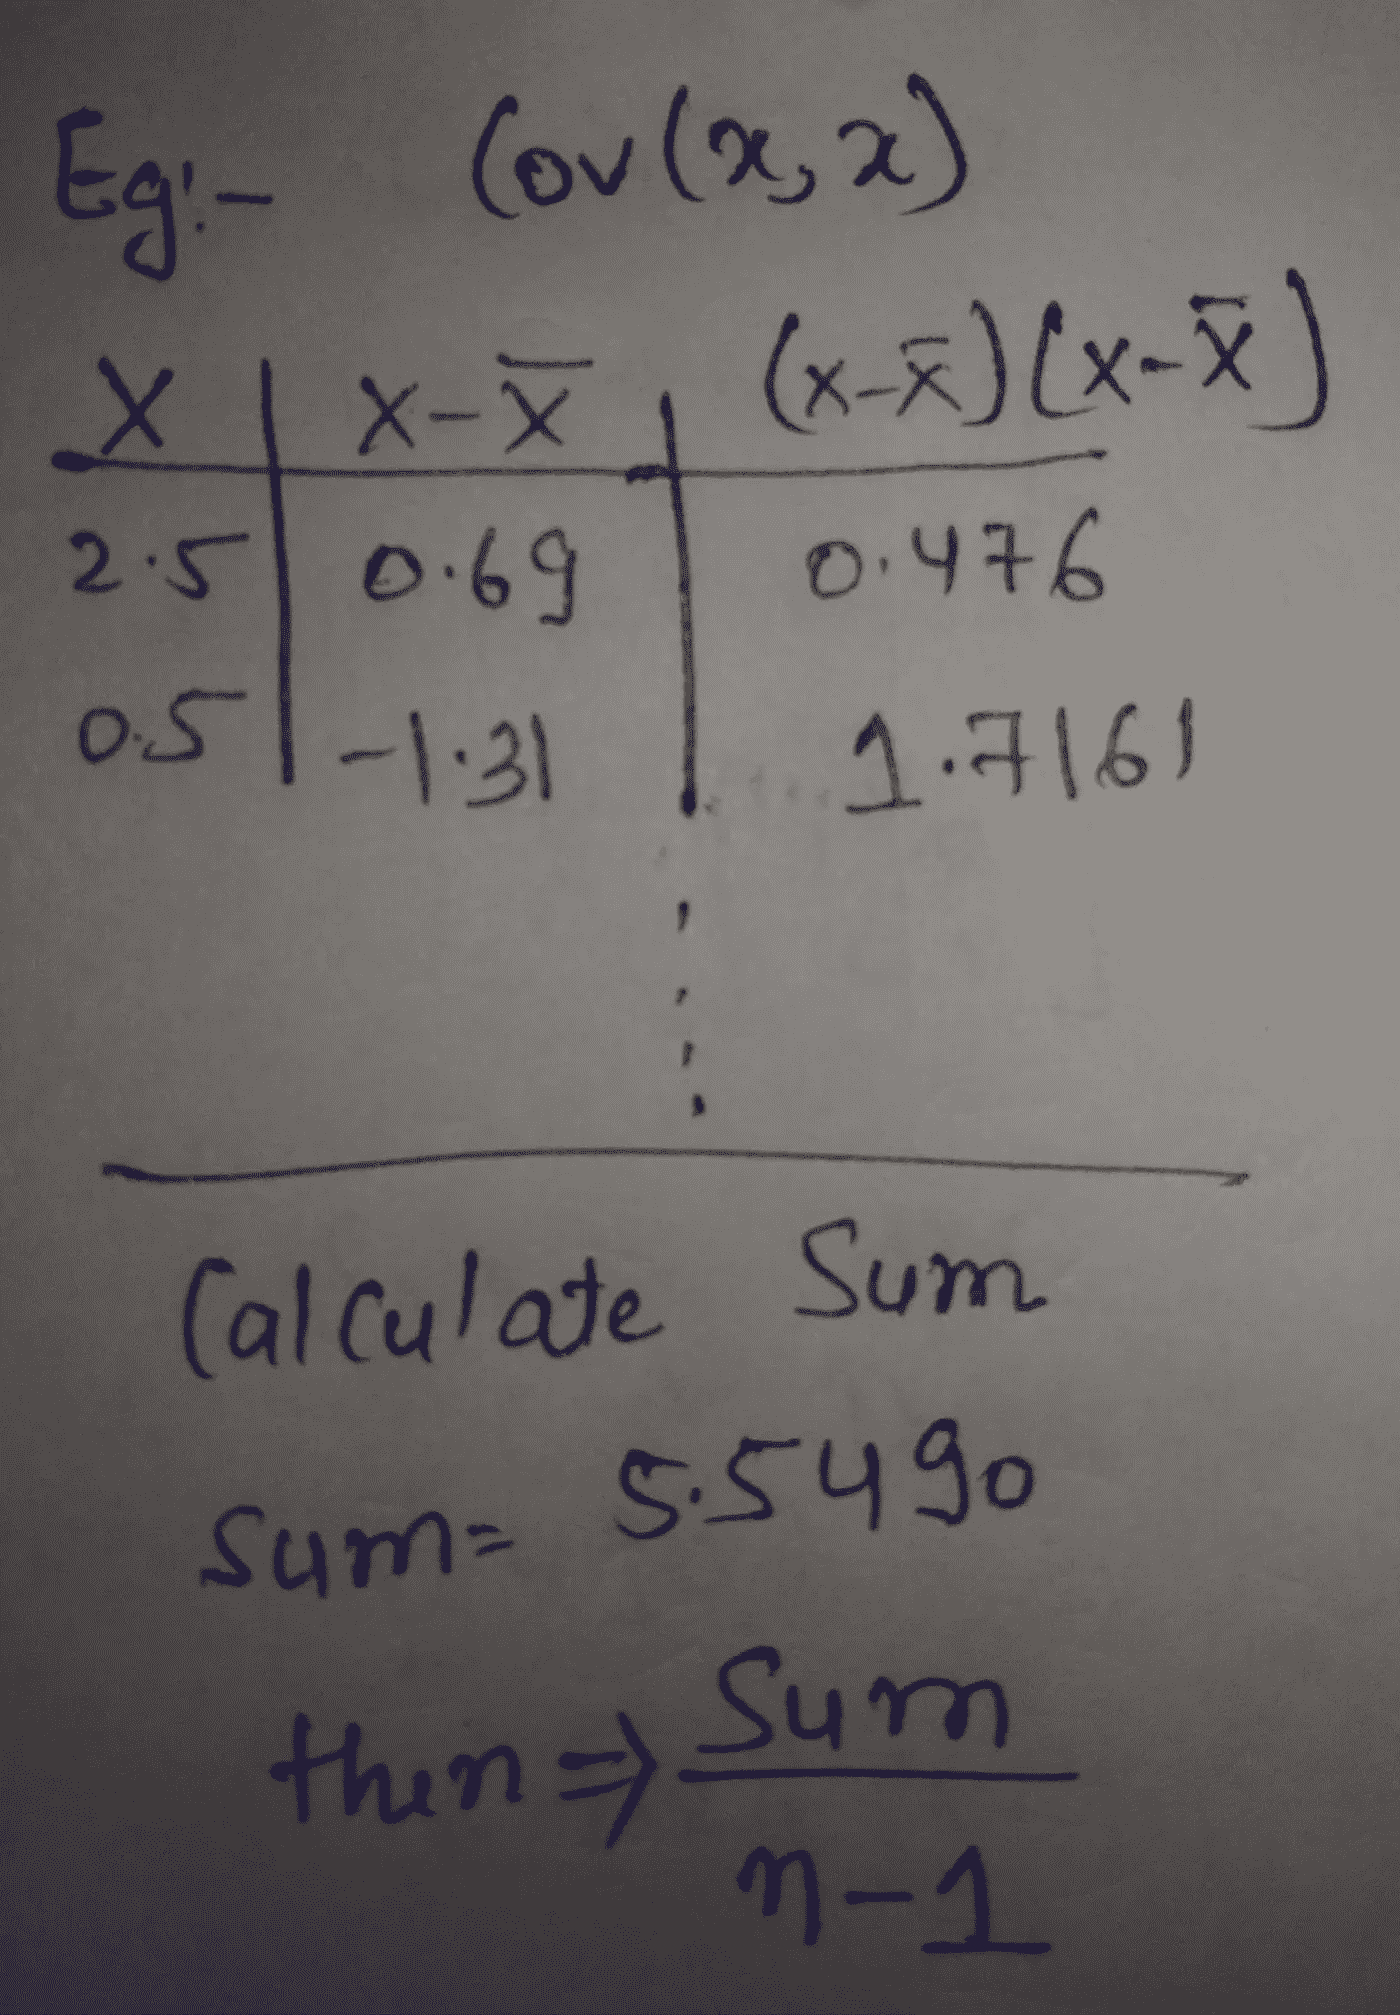 Eg:- Cov(x,x)
X | X-X̄ | (x-x̄)(x-x̄)
2.5 | 0.69 | 0.476
0.5 | -1.31 | 1.7161
Calculate Sum
Sum= 5.5490
then ⇒ Sum
n-1